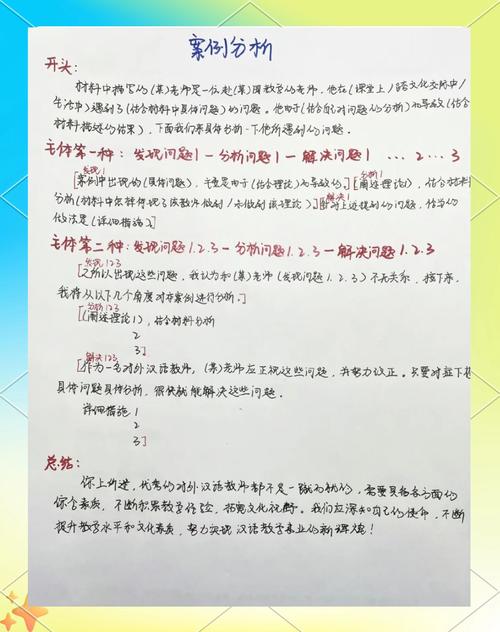 案例分析
开头:
材料中描写的(某)老师是一位赴(某)国教学的老师,他在(课堂上/跨文化交际中/
生活中)遇到了(结合材料中具体问题)的问题。他由于(结合自己对问题的分析)而导致(结合
材料描述的结果),下面我们来具体分析一下他所遇到的问题。
主体第一种:发现问题1—分析问题1—解决问题1 ...2...3
发现1 分析1
[案例中出现的(具体问题),主要是由于(结合理论)而导致的。][(阐述理论1),结合材料
解决1
分析(材料中怎样体现了该教师做到/未做到该理论)][面对上述提到的问题,恰当的
做法是(详细措施)]
主体第二种:发现问题1.2.3—分析问题1.2.3—解决问题1.2.3
发现123
[之所以出现这些问题,我认为和(某)老师(发现问题1.2.3)不无关系,接下来,
我将从以下几个角度对本案例进行分析。]
分析123
[(阐述理论1),结合材料分析
2
3]
解决123
[作为一名对外汉语教师,(某)老师应正视这些问题,并努力改正。只要对症下药
具体问题具体分析,很快就能解决这些问题。
详细措施1
2
3]
总结:
综上所述,优秀的对外汉语教师都不是一蹴而就的,需要具备各方面的
综合素质,不断积累教学经验,拓宽文化视野。我们应深知自己的使命,不断
提升教学水平和文化素质,努力实现汉语教育事业的新辉煌!